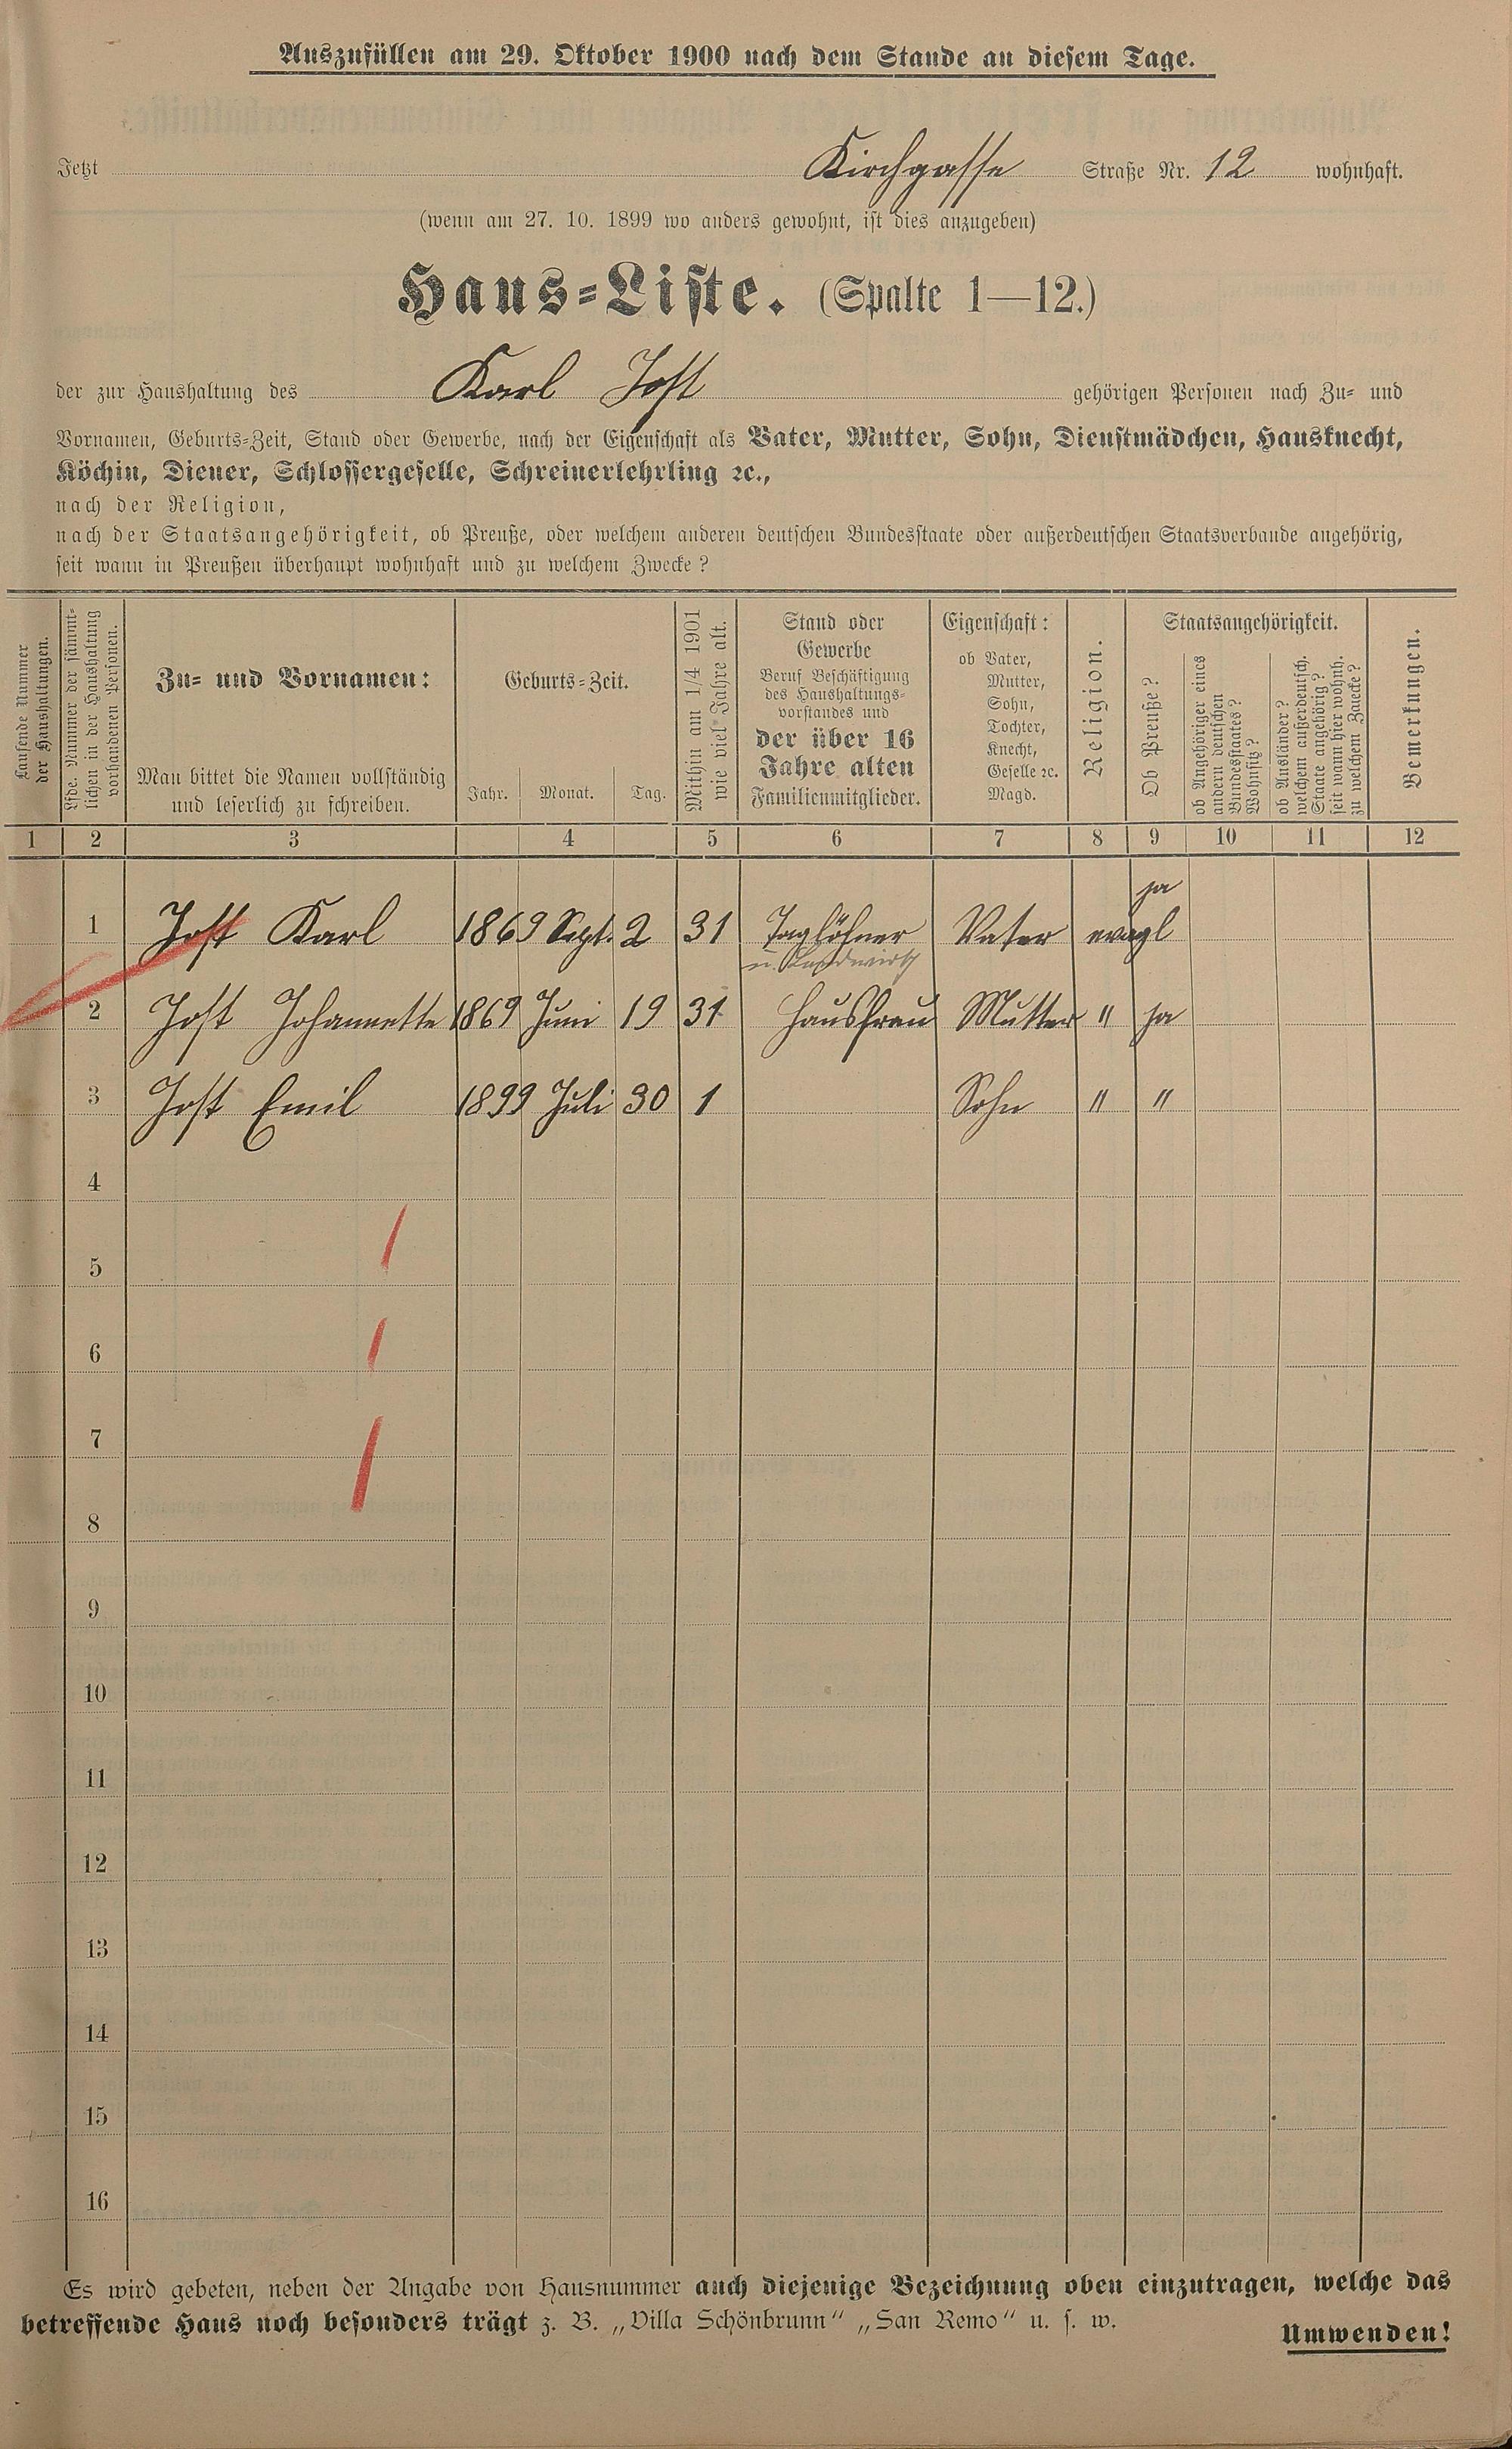 Auszufüllen am 29. Oktober 1900 nach dem Stande an diesem Tage.
Jetzt Kirchgasse Straße Nr. 12 wohnhaft.
(wenn am 27. 10. 1899 wo anders gewohnt, ist dies anzugeben)
Haus-Liste. (Spalte 1—12.)
der zur Haushaltung des Karl Jost gehörigen Personen nach Zu- und
Vornamen, Geburts-Zeit, Stand oder Gewerbe, nach der Eigenschaft als Vater, Mutter, Sohn, Dienstmädchen, Hausknecht,
Köchin, Diener, Schlossergeselle, Schreinerlehrling ꝛc.,
nach der Religion,
nach der Staatsangehörigkeit, ob Preuße, oder welchem anderen deutschen Bundesstaate oder außerdeutschen Staatsverbande angehörig,
seit wann in Preußen überhaupt wohnhaft und zu welchem Zwecke?
Laufende Nummer
der Haushaltungen.
Lfde. Nummer der sämmt-
lichen in der Haushaltung
vorhandenen Personen.
Zu- und Vornamen:
Man bittet die Namen vollständig
und leserlich zu schreiben.
Geburts-Zeit.
Jahr. Monat. Tag.
Mithin am 1/4 1901
wie viel Jahre alt.
Stand oder
Gewerbe
Beruf Beschäftigung
des Haushaltungs-
vorstandes und
der über 16
Jahre alten
Familienmitglieder.
Eigenschaft:
ob Vater,
Mutter,
Sohn,
Tochter,
Knecht,
Geselle ꝛc.
Magd.
Religion.
Staatsangehörigkeit.
Ob Preuße?
ob Angehöriger eines
andern deutschen
Bundesstaates?
Wohnsitz?
ob Ausländer?
welchem außerdeutsch.
Staate angehörig?
seit wann hier wohnh.
zu welchem Zwecke?
Bemerkungen.
1 2 3 4 5 6 7 8 9 10 11 12
ja
1 Jost Karl 1869 Sept. 2 31 Taglöhner Vater evagl
u. Landwirth
2 Jost Johannette 1869 Juni 19 31 Hausfrau Mutter " ja
3 Jost Emil 1899 Juli 30 1 Sohn " "
4
5
6
7
8
9
10
11
12
13
14
15
16
Es wird gebeten, neben der Angabe von Hausnummer auch diejenige Bezeichnung oben einzutragen, welche das
betreffende Haus noch besonders trägt z. B. „Villa Schönbrunn“ „San Remo“ u. s. w.
Umwenden!